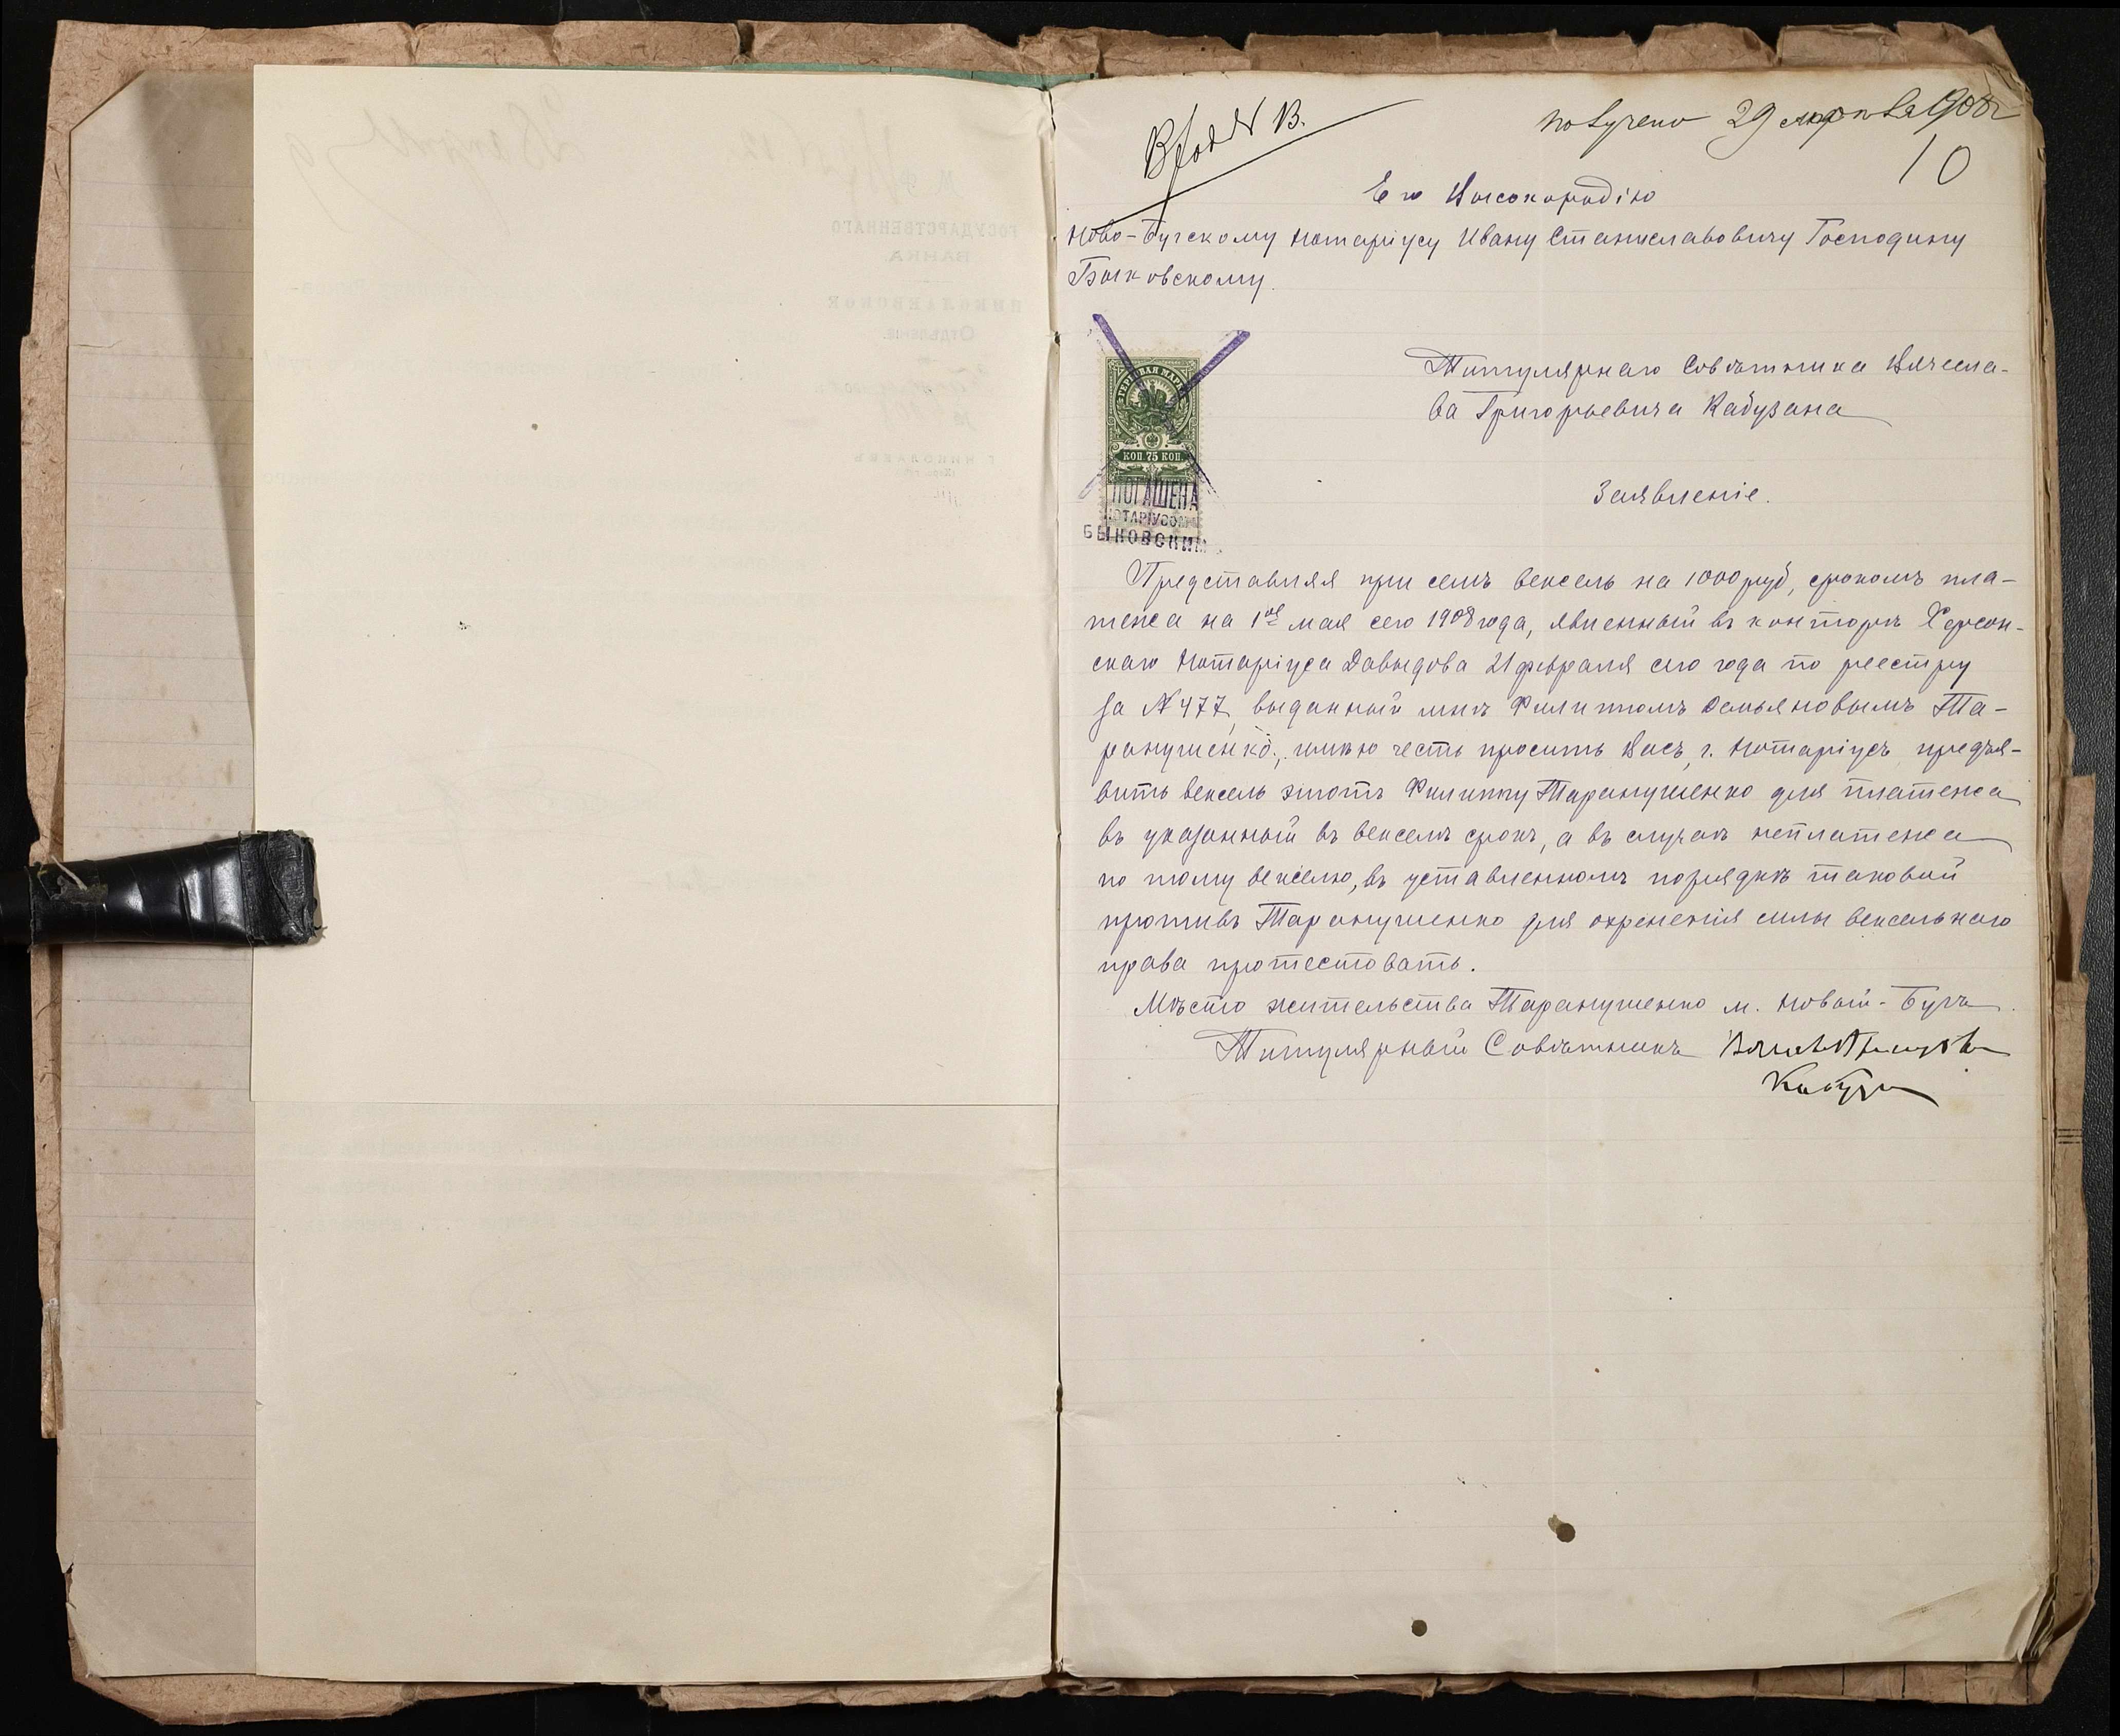 Вход. № 13.
получено 29 марта 1908 г
10
Его Высокородію
Ново-Бугскому Нотаріусу Ивану Станиславовичу Господину
Быковскому.
Титулярнаго Совѣтника Вячесла-
ва Григорьевича Кабузана
Заявленіе.
ГЕРБОВАЯ МАРКА
КОП. 75 КОП.
ПОГАШЕНА
НОТАРІУСОМЪ
БЫКОВСКИМЪ
Представляя при семъ вексель на 1000 руб, срокомъ пла-
тежа на 1ое мая сего 1908 года, явленный въ конторѣ Херсон-
скаго Нотаріуса Давыдова 21 февраля сего года по реестру
за № 477, выданный мнѣ Филиппомъ Демьяновымъ Та-
ранушенко, имѣю честь просить Васъ, г. Нотаріусъ, предъя-
вить вексель этотъ Филиппу Таранушенко для платежа
въ указанный въ векселѣ срокъ, а въ случаѣ неплатежа
по тому векселю, въ уставленномъ порядкѣ таковой
противъ Таранушенко для охраненія силы вексельнаго
права протестовать.
Мѣсто жительства Таранушенко м. Новый-Бугъ.
Титулярный Совѣтникъ
Кабузан